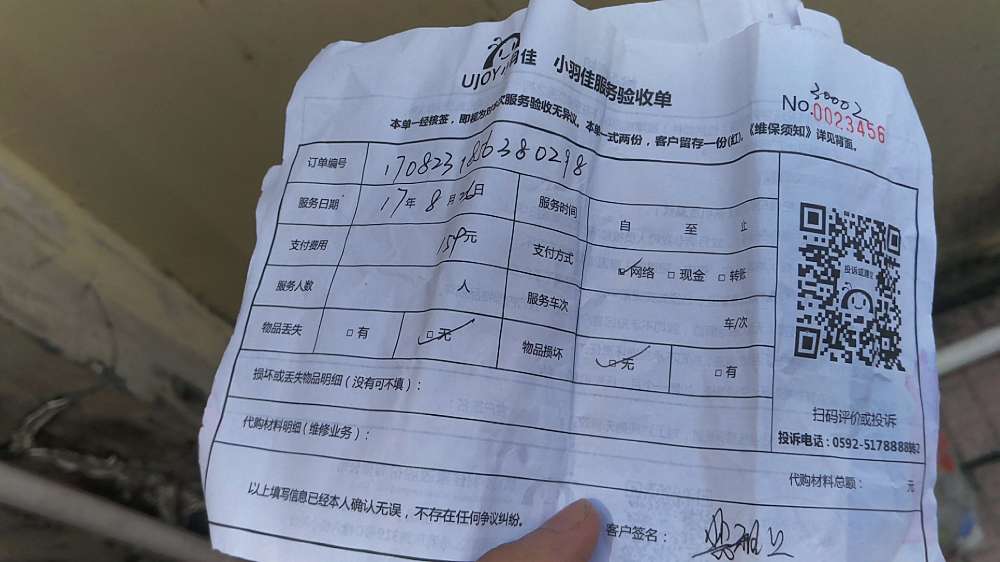 UJOY小羽佳 小羽佳服务验收单
30002
No.0023456
本单一经核签，即视为对本次服务验收无异议。本单一式两份，客户留存一份(红)。《维保须知》详见背面。
订单编号
服务日期 17年8月26日 服务时间 自 至 止
支付费用 159元 支付方式 □网络 □现金 □转账
服务人数 人 服务车次 车/次
物品丢失 □有 □无 物品损坏 □无 □有
损坏或丢失物品明细（没有可不填）：
代购材料明细（维修业务）：
代购材料总额： 元
以上填写信息已经本人确认无误，不存在任何争议纠纷。
客户签名：
投诉或建议
扫码评价或投诉
投诉电话：0592-5178888转2